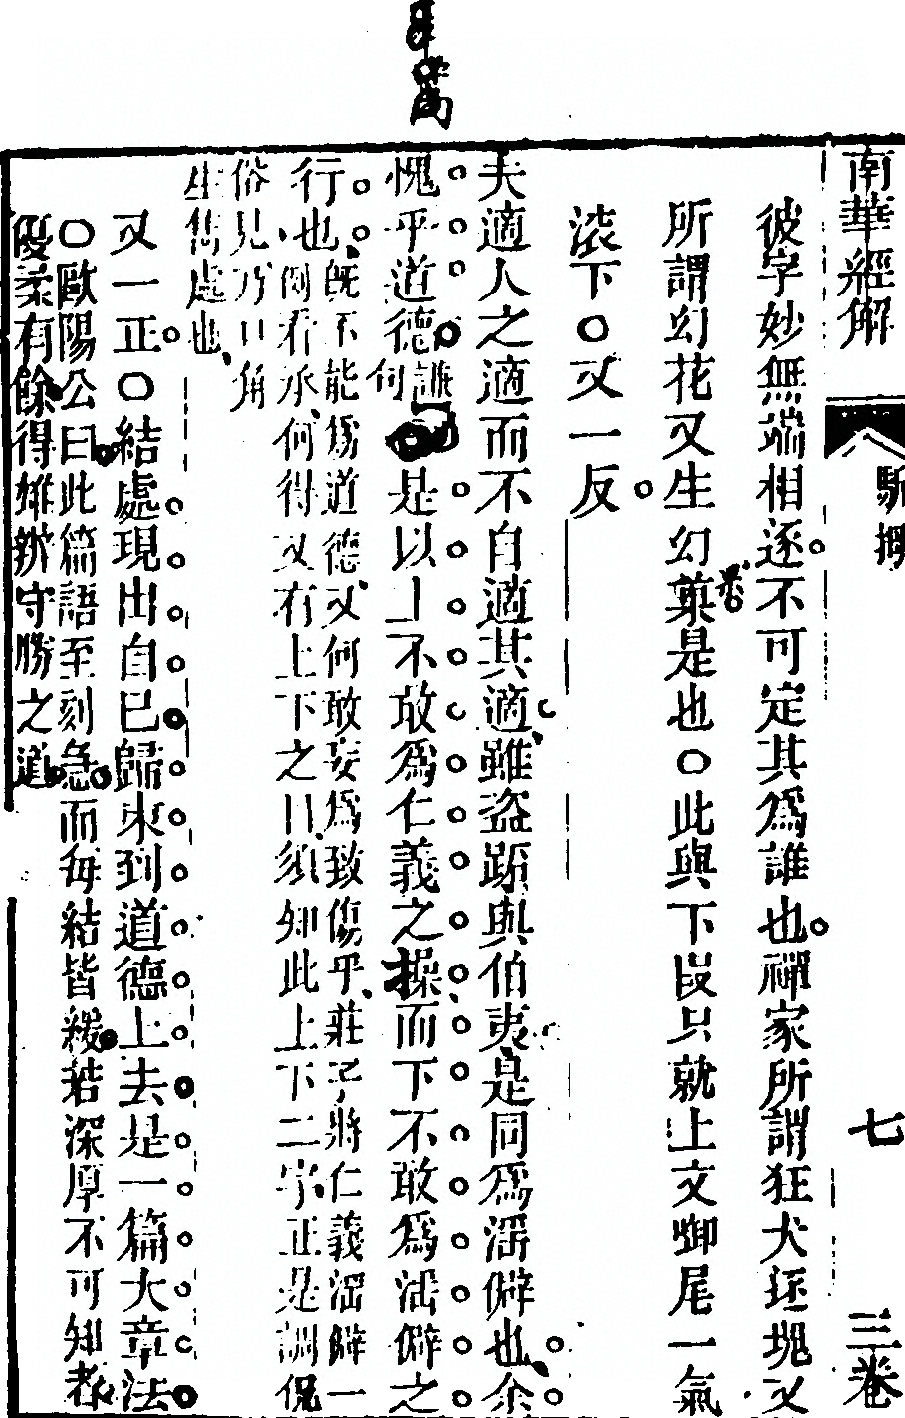 南華經解
駢拇
七
三卷
彼字妙無端相逐不可定其為誰也禪家所謂狂犬逐塊又
所謂幻花又生幻菓是也○此與下段只就上文啣尾一氣
滚下○又一反
夫適人之適而不自適其適雖盜跖與伯夷是同為淫僻也余
愧乎道德謙句是以上不敢為仁義之操而下不敢為淫僻之
行也既不能為道德又何敢妄為致傷乎莊子將仁義淫僻一
倒看承何得又有上下之目須知此上下二字正是調侃
俗見乃口角
生雋處也
又一正○結處現出自巳歸來到道德上去是一篇大章法
○歐陽公曰此篇語至刻急而每結皆緩若深厚不可知者
優柔有餘得雄辨守勝之道